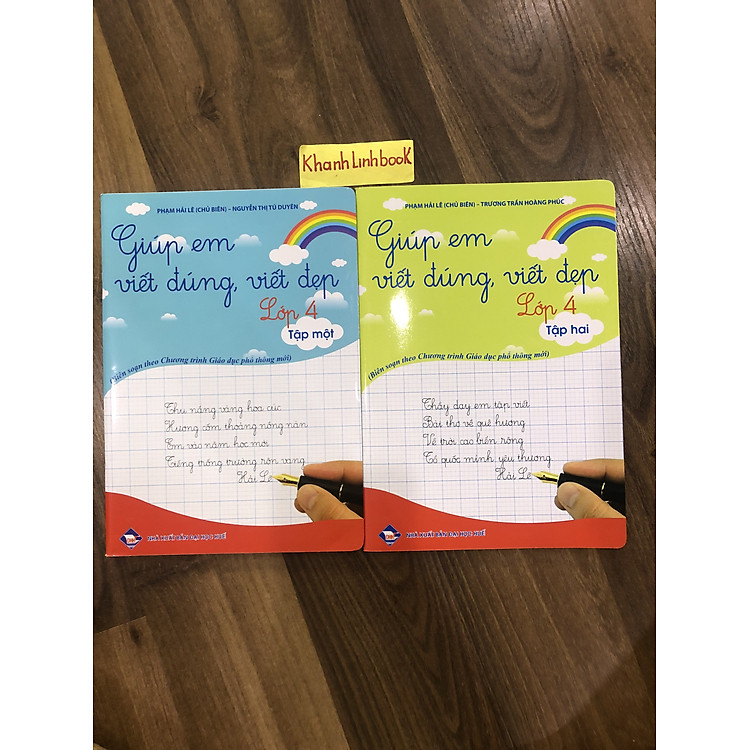 KhanhLinhbook
PHẠM HẢI LÊ (CHỦ BIÊN) – NGUYỄN THỊ TÚ DUYÊN
Giúp em
viết đúng, viết đẹp
Lớp 4
Tập một
(Biên soạn theo Chương trình Giáo dục phổ thông mới)
Thu nắng vàng hoa cúc
Hương cốm thoảng nồng nàn
Em vào năm học mới
Tiếng trống trường rộn vang
Hải Lê
NHÀ XUẤT BẢN ĐẠI HỌC HUẾ
PHẠM HẢI LÊ (CHỦ BIÊN) – TRƯƠNG TRẦN HOÀNG PHÚC
Giúp em
viết đúng, viết đẹp
Lớp 4
Tập hai
(Biên soạn theo Chương trình Giáo dục phổ thông mới)
Thầy dạy em tập viết
Bài thơ về quê hương
Vẽ trời cao biển rộng
Tổ quốc mình yêu thương
Hải Lê
NHÀ XUẤT BẢN ĐẠI HỌC HUẾ